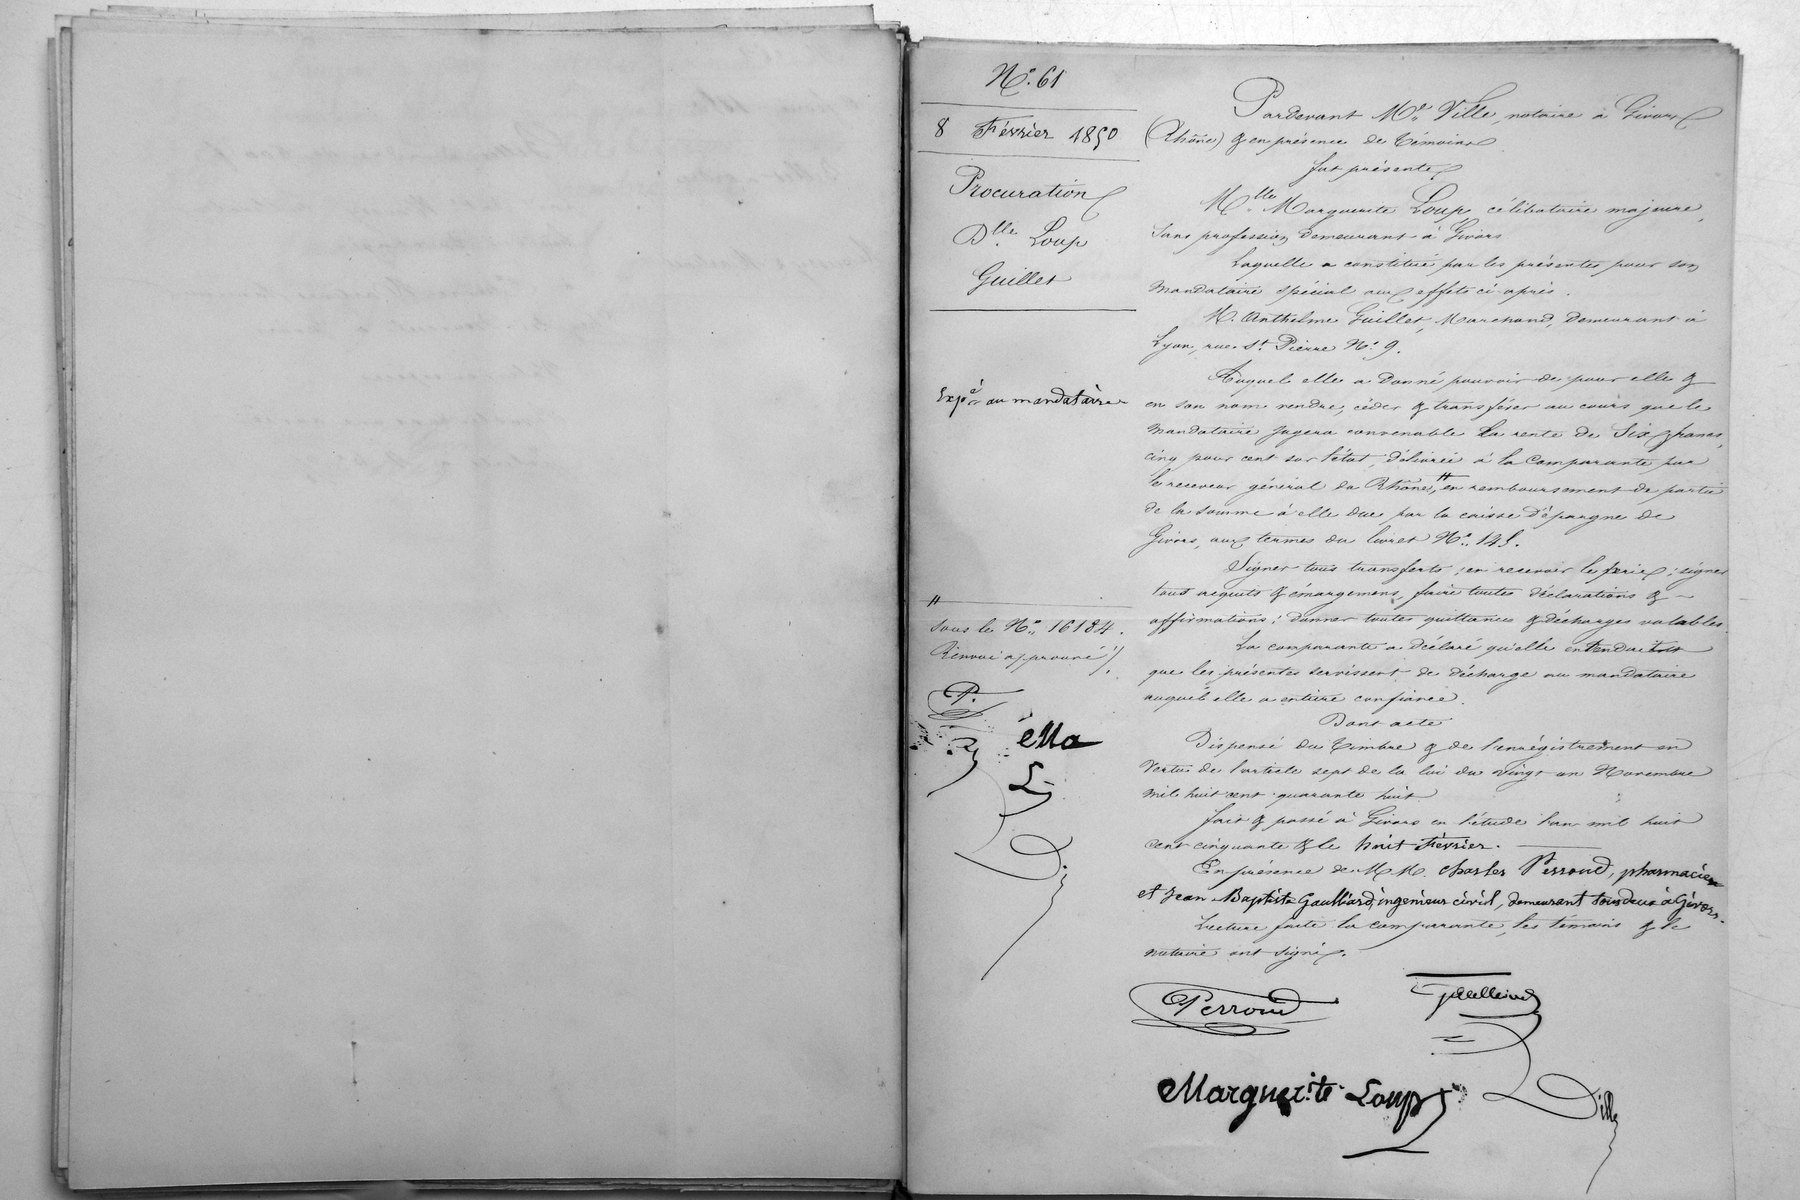 N.° 61
8 Février 1850
Procuration
D.lle Loup
Guillet
Exp.é au mandataire
"
sous le N.° 16184.
Renvoi approuvé
P.
Ma
L
Pardevant M.e Ville, notaire à Givors
(Rhône) & en présence de témoins
fut présente
M.lle Marguerite Loup, célibataire majeure,
sans profession, demeurant à Givors
Laquelle a constitué par les présentes pour son
mandataire spécial aux effets ci-après.
M. Anthelme Guillet, Marchand, demeurant à
Lyon, rue St. Pierre N.° 9.
Auquel elle a donné pouvoir de pour elle &
en son nom vendre, céder & transférer au cours que le
mandataire jugera convenable la rente de six francs,
cinq pour cent sur l'état, délivrée à la comparante par
le receveur général du Rhône, " en remboursement de partie
de la somme à elle due par la caisse d'épargne de
Givors, aux termes du livret N.° 145.
Signer tous transferts ; en recevoir le prix ; signer
tous acquits & émargemens, faire toutes déclarations &
affirmations ; donner toutes quittances & décharges valables.
La comparante a déclaré qu'elle entendait
que les présentes servissent de décharge au mandataire
auquel elle a entière confiance.
Dont acte
Dispensé du timbre & de l'enrégistrement en
vertu de l'article sept de la loi du vingt un Novembre
mil huit cent quarante huit
fait & passé à Givors en l'étude l'an mil huit
cent cinquante & le huit Février.
En présence de M.M. Charles Perroud, pharmacien
et Jean Baptiste Gaulliard, ingénieur civil, demeurant tous deux à Givors.
Lecture faite la comparante, les témoins & le
notaire ont signé.
Perroud
Marguerite Loup
Ville